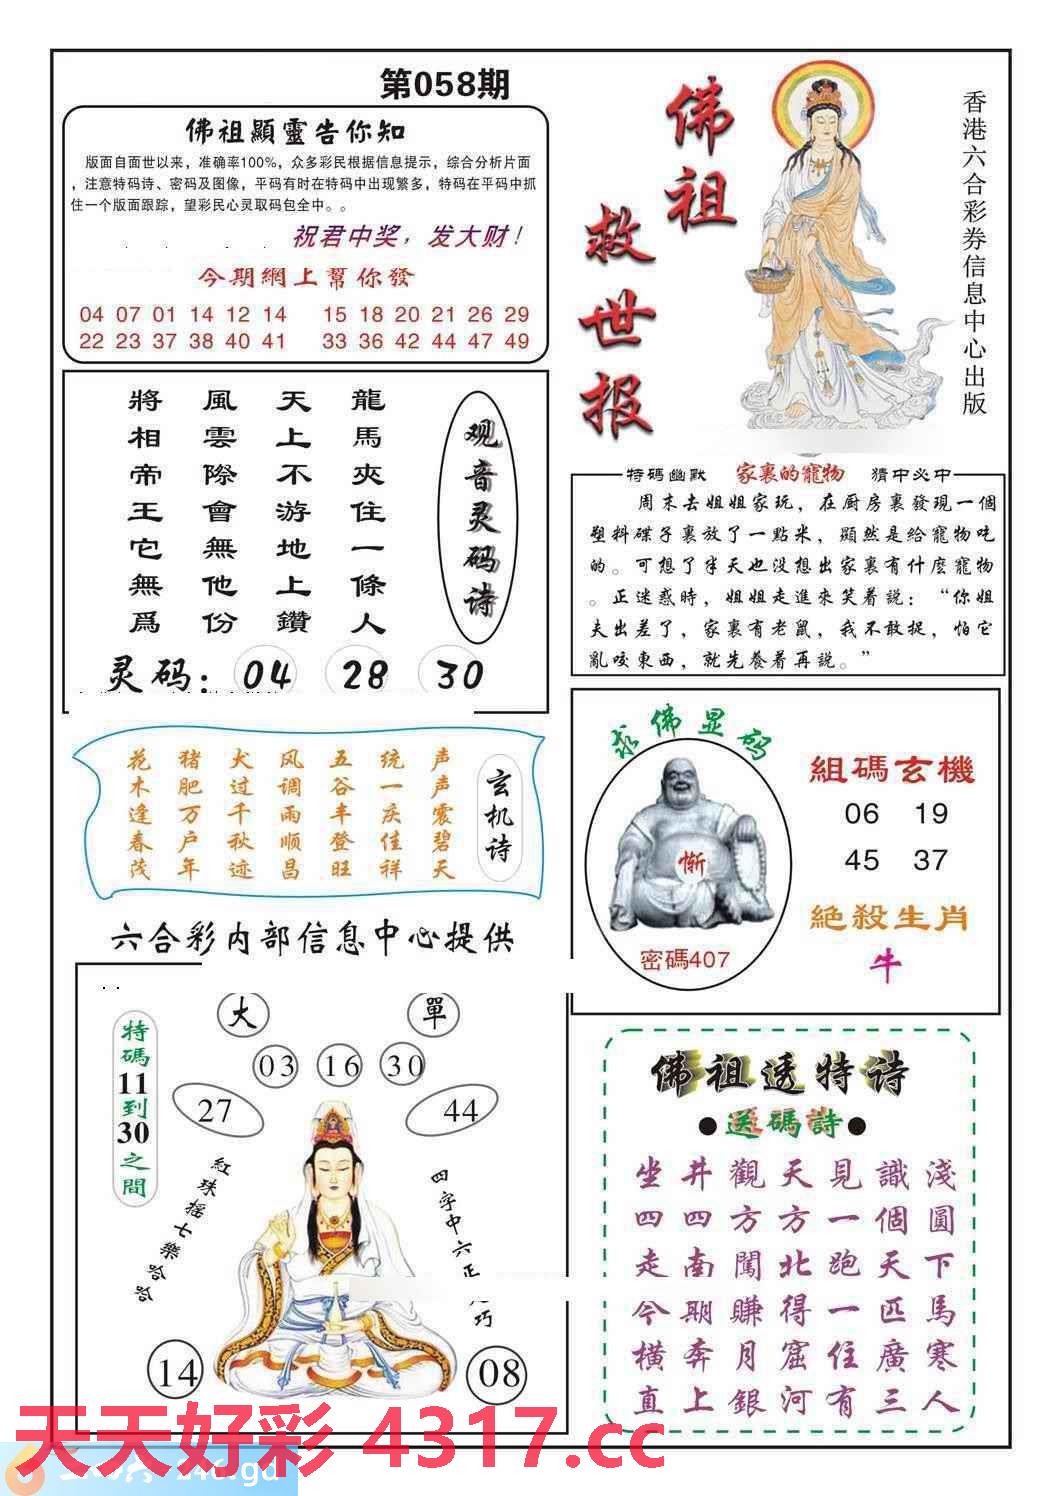 第058期
佛祖顯靈告你知
版面自面世以来，准确率100%，众多彩民根据信息提示，综合分析片面
，注意特码诗、密码及图像，平码有时在特码中出现繁多，特码在平码中抓
住一个版面跟踪，望彩民心灵取码包全中。。
祝君中奖，发大财！
今期網上幫你發
04 07 01 14 12 14 15 18 20 21 26 29
22 23 37 38 40 41 33 36 42 44 47 49
佛祖
救世报
香港六合彩券信息中心出版
观音灵码诗
龍馬夾住一條人
天上不游地上鑽
風雲際會無他份
將相帝王它無爲
灵码：04 28 30
特码幽默 家裏的寵物 猜中必中
周末去姐姐家玩，在厨房裏發現一個
塑料碟子裏放了一點米，顯然是给寵物吃
的。可想了半天也没想出家裏有什麽寵物
。正迷惑時，姐姐走進來笑着説：“你姐
夫出差了，家裏有老鼠，我不敢捉，怕它
亂咬東西，就先養着再說。”
玄机诗
声声震碧天
统一庆佳祥
五谷丰登旺
风调雨顺昌
犬过千秋迹
猪肥万户年
花木逢春茂
求佛显码
惭
密碼407
組碼玄機
06 19
45 37
絕殺生肖
牛
六合彩内部信息中心提供
大 單
03 16 30
27 44
特碼11到30之間
紅珠摇七樂哈哈
四字中六正 巧
14 08
佛祖透特诗
●送碼詩●
坐井觀天見識淺
四四方方一個圓
走南闖北跑天下
今期賺得一匹馬
横奔月窟住廣寒
直上銀河有三人
天天好彩 4317.cc
246.gd